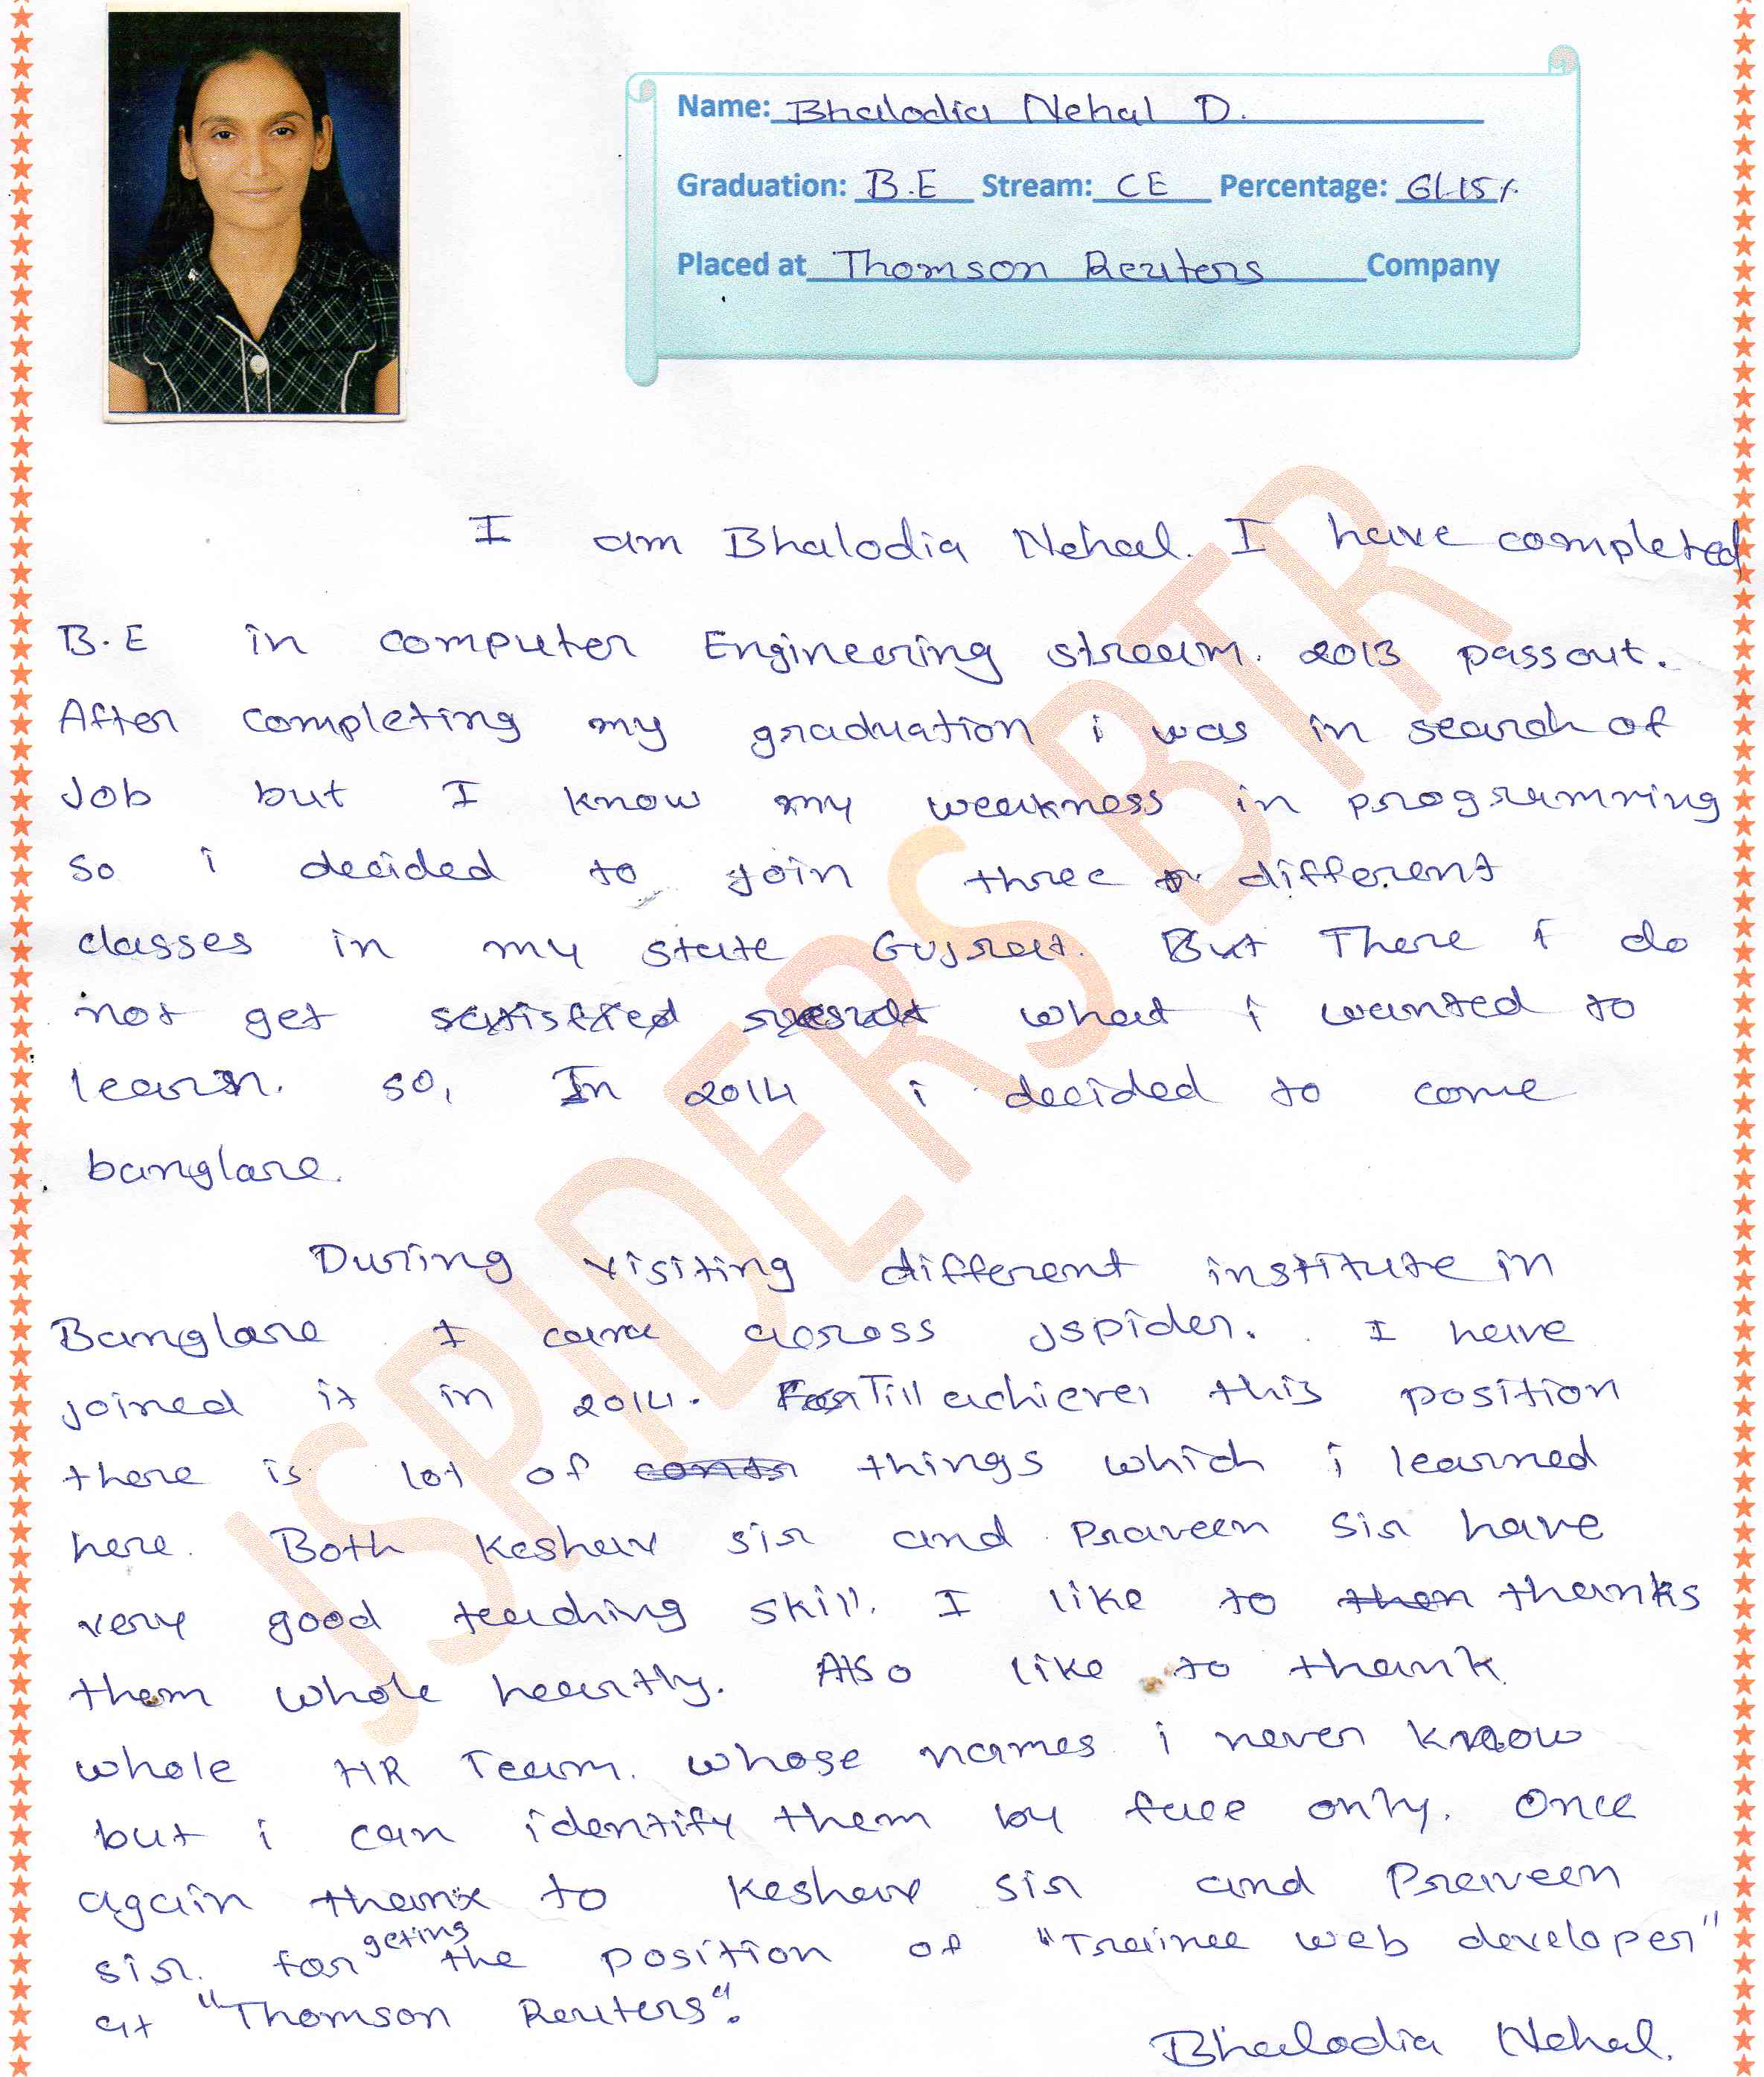 Name: Bhalodia Nehal D.
Graduation: B.E Stream: CE Percentage: 61.15%
Placed at Thomson Reuters Company
I am Bhalodia Nehal. I have completed
B.E in computer Engineering stream. 2013 passout.
After completing my graduation i was in search of
Job but I know my weakness in programming
so i decided to join three different
classes in my state Gujrat. But There i do
not get satisfied result what i wanted to
learn. so, In 2014 i decided to come
banglore.
During visiting different institute in
Banglore I came across jspider. I have
joined it in 2014. Till achieve this position
there is lot of things which i learned
here. Both Keshav sir and Praveen sir have
very good teaching skill. I like to thanks
them whole heartly. Also like to thank
whole HR Team. whose names i never know
but i can identify them by face only. Once
again thanx to Keshav sir and Praveen
sir. for geting the position of "Trainee web developer"
at "Thomson Reuters".
Bhalodia Nehal.
JSPIDERS BTR